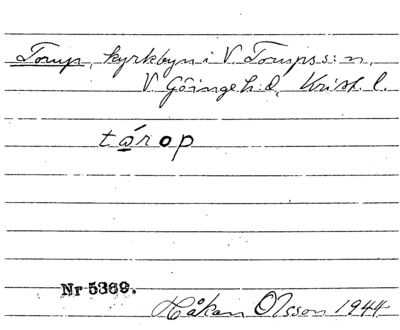 Torup, kyrkbyn i V. Torups s:n,
V. Göinge h:d, Krist. l.
tá̲rop
Nr 5369.
Håkan Olsson 1944